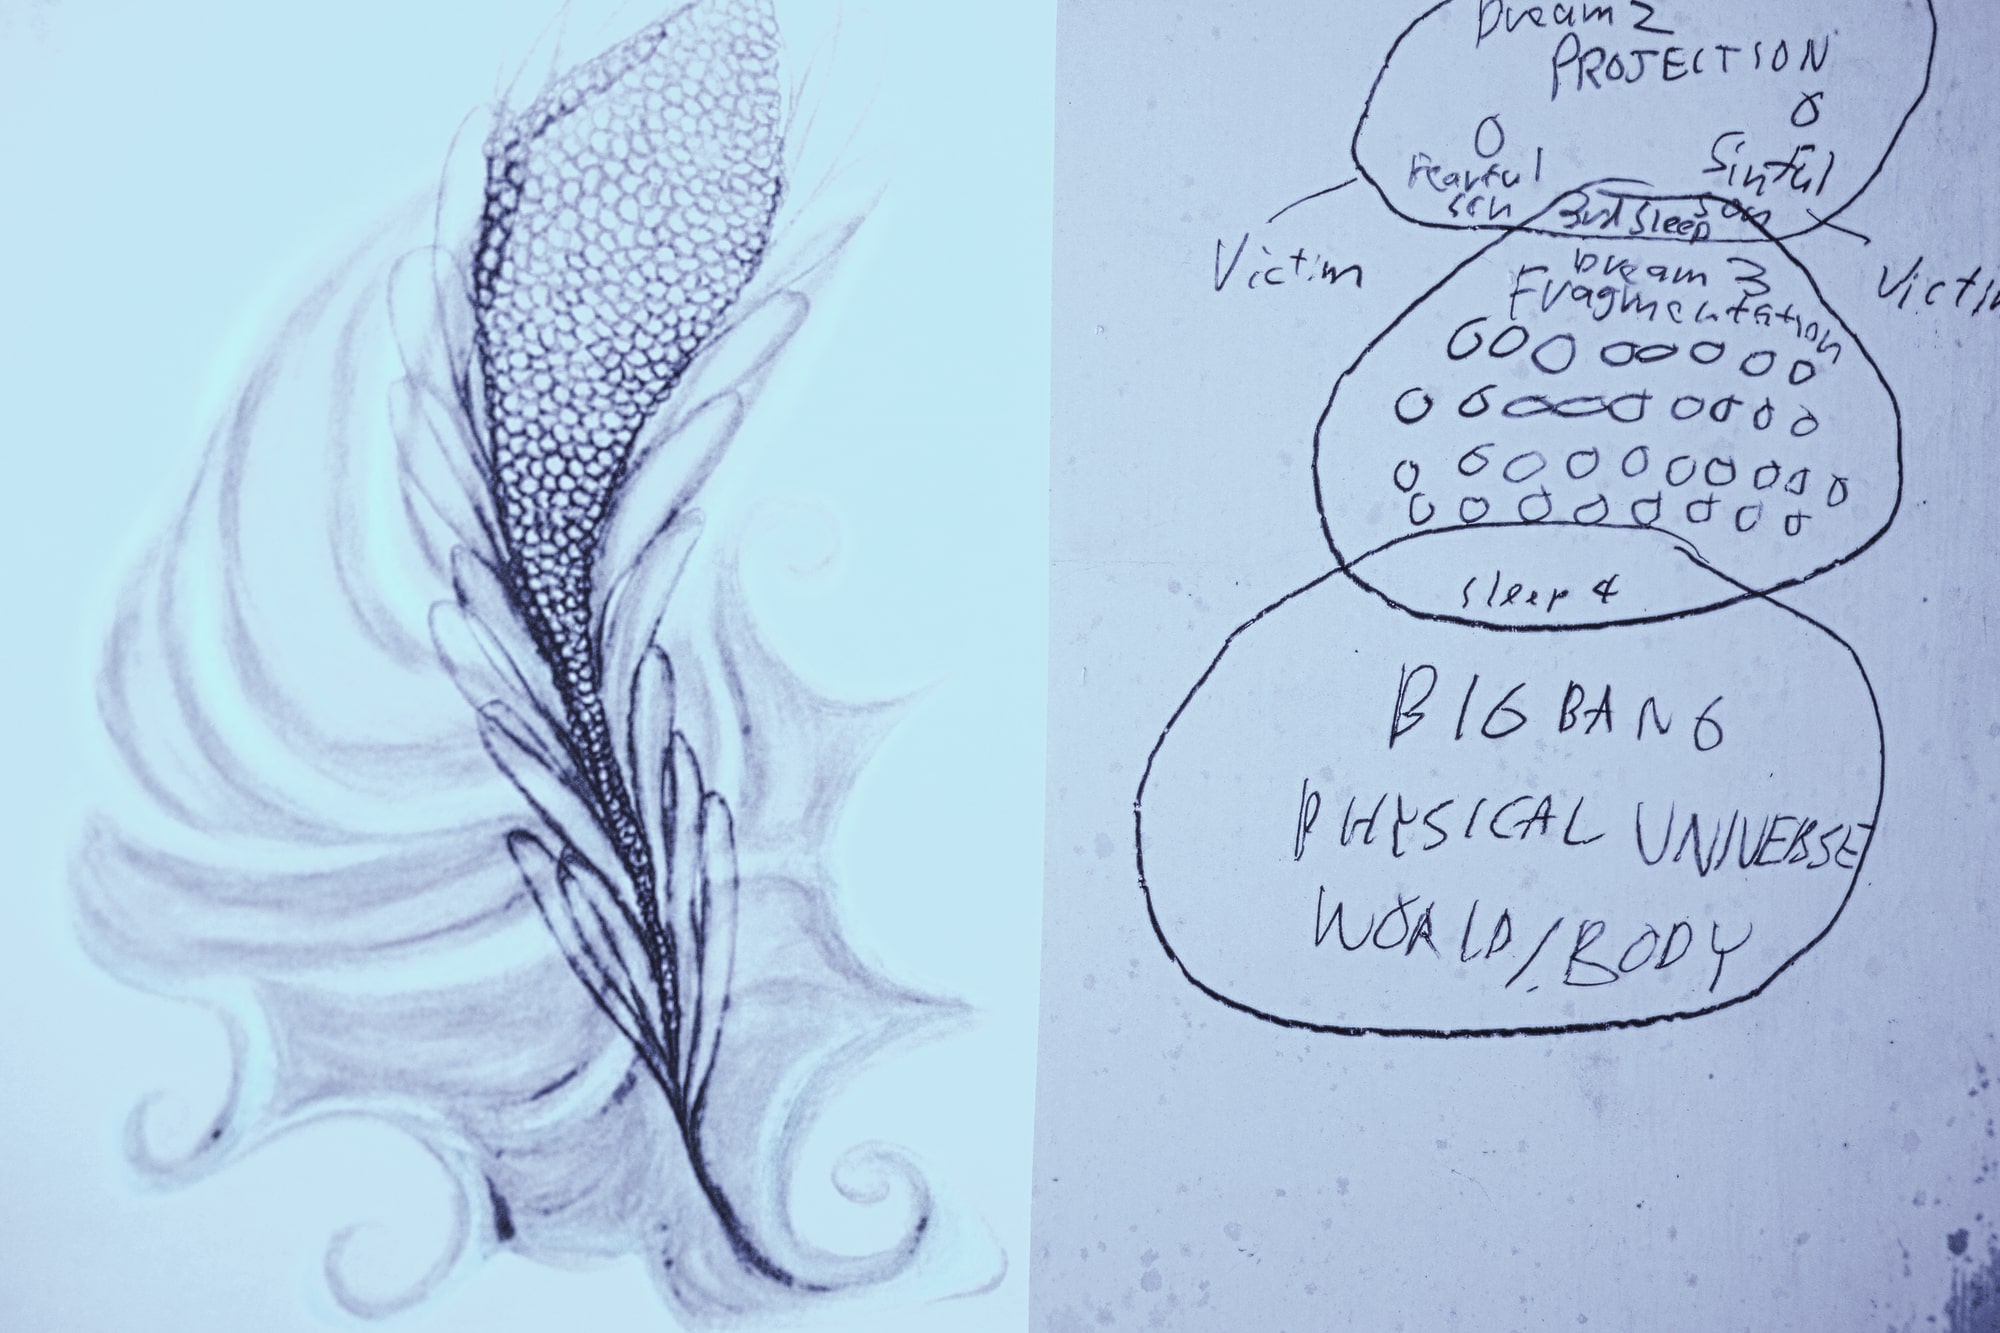 Dream 2
PROJECTION
Fearful
son
Sinful
son
3rd Sleep
Victim
Dream 3
Fragmentation
sleep 4
BIG BANG
PHYSICAL UNIVERSE
WORLD/BODY